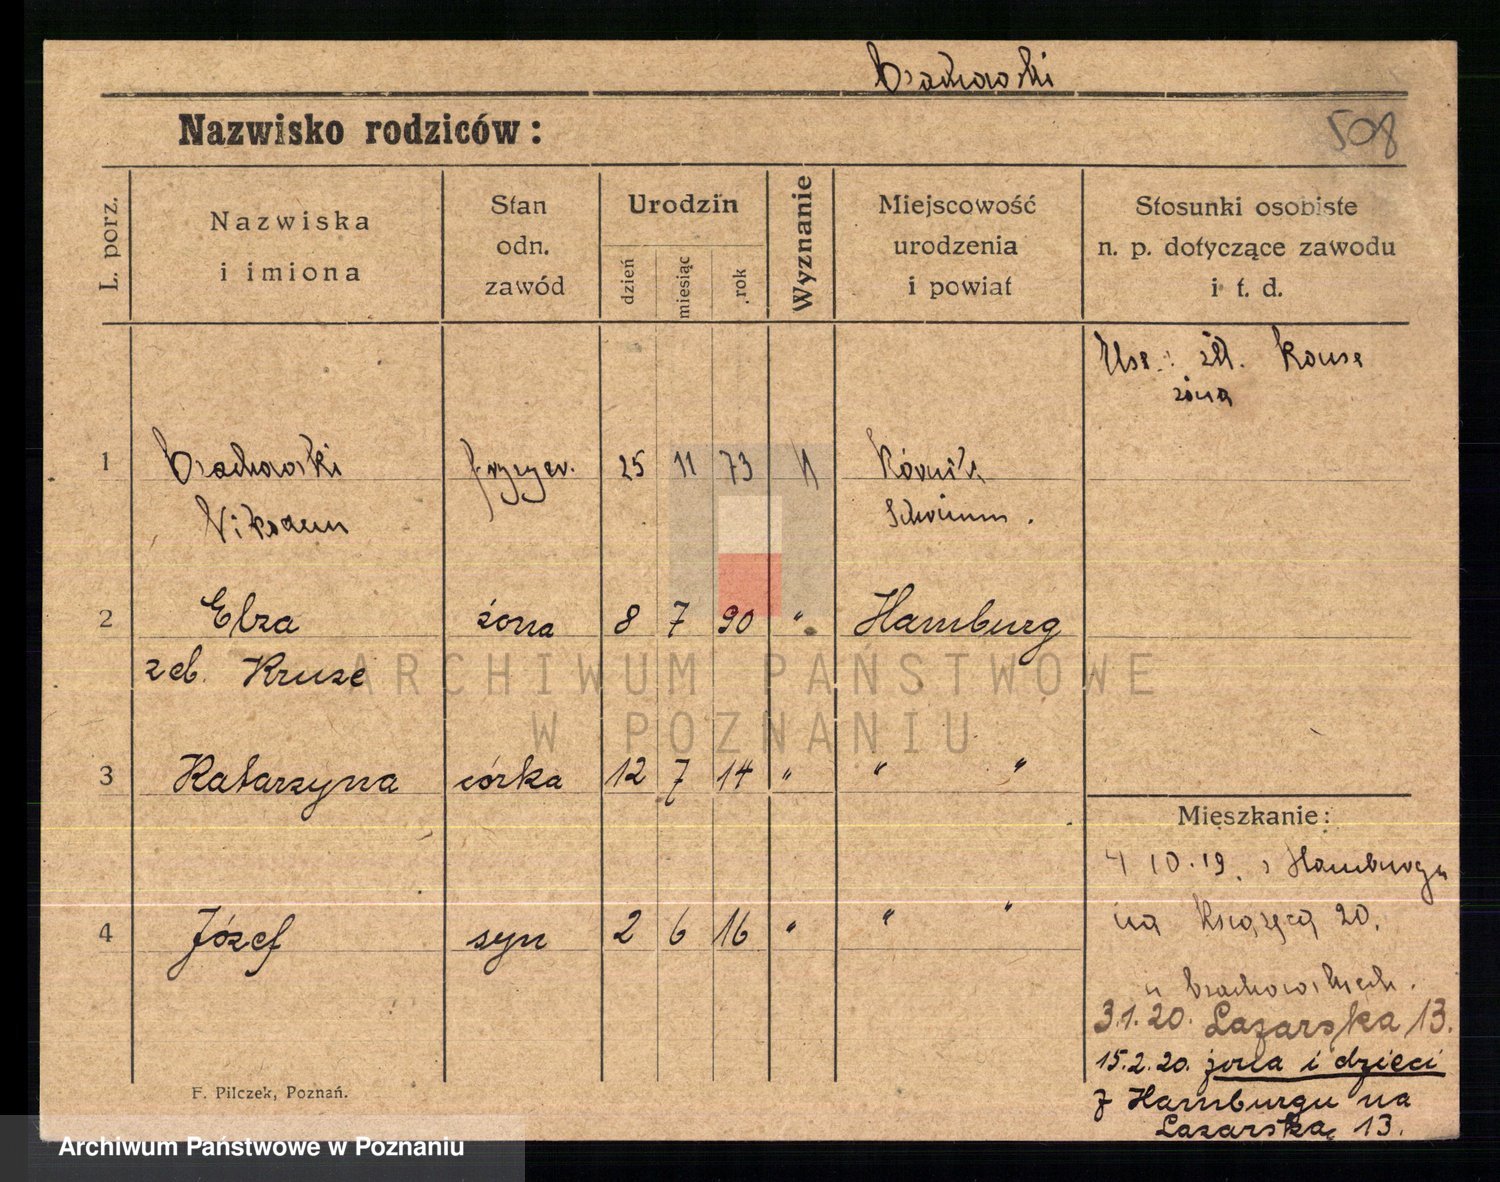 Nazwisko rodziców:
508
L. porz.
Nazwiska
i imiona
Stan
odn.
zawód
Urodzin
dzień
miesiąc
rok
Wyznanie
Miejscowość
urodzenia
i powiat
Stosunki osobiste
n. p. dotyczące zawodu
i t. d.
żona
1
fryzyer.
25
11
73
Kórnik
Nikodem
Schrimm.
2
Elza
żona
8
7
90
"
Hamburg
zeb. Kruze
ARCHIWUM PAŃSTWOWE
W POZNANIU
3
Katarzyna
córka
12
7
14
"
"
"
Mieszkanie:
4 10.19. z Hamburga
na Książęcą 20.
4
Józef
syn
2
6
16
"
"
"
3.1.20. Łazarska 13.
15.2.20. żona i dzieci
z Hamburgu na
Łazarską 13.
F. Pilczek, Poznań.
Archiwum Państwowe w Poznaniu